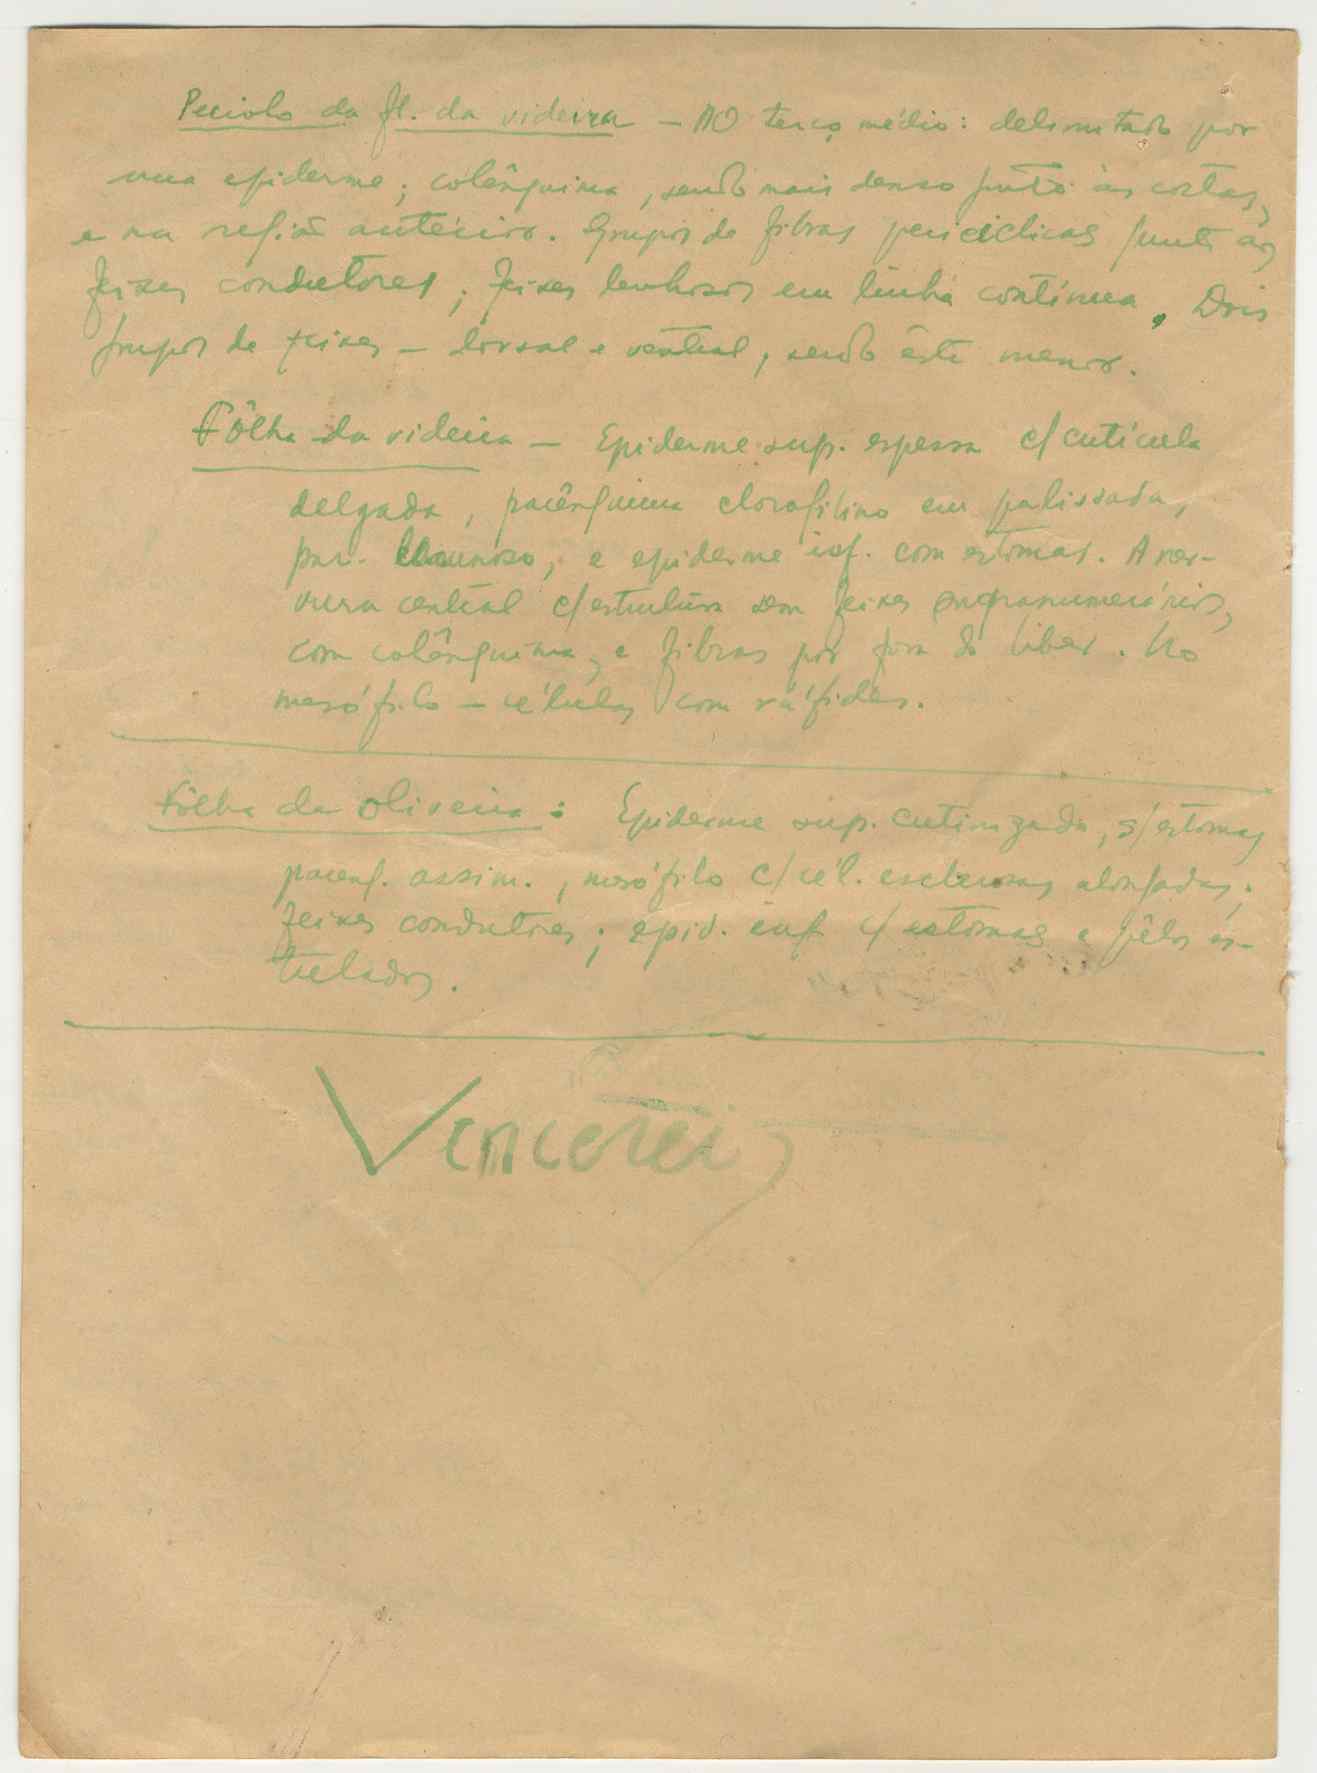 Pecíolo da fl. da videira — AO terço médio: delimitado por
uma epiderme; colênquima, sendo mais denso junto às costas,
e na região anterior. Grupos de fibras pericíclicas junto aos
feixes condutores; feixes lenhosos em linha contínua. Dois
grupos de feixes — dorsal e ventral, sendo êste menor.
Fôlha da videira — Epiderme sup. espessa c/ cutícula
delgada, parênquima clorofilino em palissada,
par. lacunoso, e epiderme inf. com estomas. A ner-
vura central c/ estrutura sem feixes supranumerários,
com colênquima, e fibras por fora do liber. No
mesófilo — células com ráfides.
Fôlha da oliveira: Epiderme sup. cutinizada, s/ estomas
parenq. assim., mesófilo c/ cél. esclerosas alongadas;
feixes condutores; epid. inf. c/ estomas e pêlos es-
trelados.
Vencerei